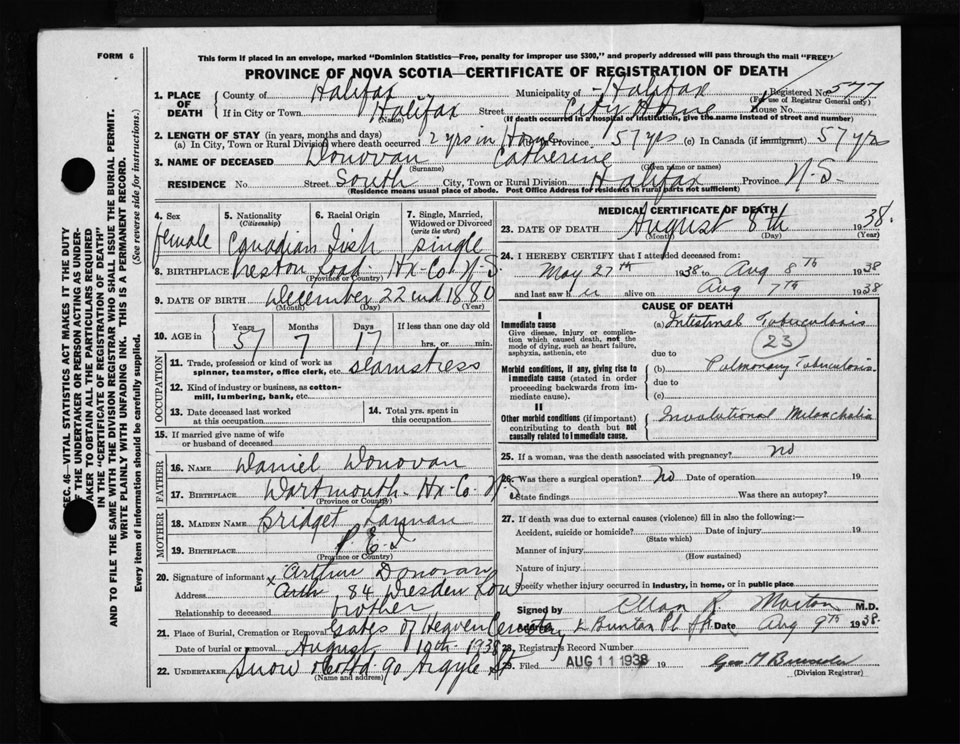 FORM 6
This form if placed in an envelope, marked "Dominion Statistics—Free, penalty for improper use $300," and properly addressed will pass through the mail "FREE"
PROVINCE OF NOVA SCOTIA—CERTIFICATE OF REGISTRATION OF DEATH
SEC. 46—VITAL STATISTICS ACT MAKES IT THE DUTY
OF THE UNDERTAKER OR PERSON ACTING AS UNDER-
TAKER TO OBTAIN ALL THE PARTICULARS REQUIRED
IN THE "CERTIFICATE OF REGISTRATION OF DEATH"
AND TO FILE THE SAME WITH THE DIVISION REGISTRAR WHO SHALL ISSUE THE BURIAL PERMIT.
WRITE PLAINLY WITH UNFADING INK. THIS IS A PERMANENT RECORD.
Every item of information should be carefully supplied. (See reverse side for instructions.)
1. PLACE OF DEATH County of Halifax Municipality of Halifax Registered No. 577
(For use of Registrar General only)
If in City or Town Halifax Street City Home House No.
(Name) (If death occurred in a hospital or institution, give the name instead of street and number)
2. LENGTH OF STAY (in years, months and days)
(a) In City, Town or Rural Division where death occurred 2 yrs in Home (b) In Province 57 yrs (c) In Canada (if immigrant) 57 yrs
3. NAME OF DECEASED Donovan Catherine
(Surname) (Given name or names)
RESIDENCE No. Street South City, Town or Rural Division Halifax Province N.S.
(Residence means usual place of abode. Post Office Address for residents in rural parts not sufficient)
4. Sex female
5. Nationality (Citizenship) Canadian
6. Racial Origin Irish
7. Single, Married, Widowed or Divorced (write the word) single
8. BIRTHPLACE Preston Road Hx-Co N.S.
(Province or Country)
9. DATE OF BIRTH December 22nd 1880
(Month) (Day) (Year)
10. AGE in Years 57 Months 7 Days 17 If less than one day old hrs. or min.
OCCUPATION
11. Trade, profession or kind of work as spinner, teamster, office clerk, etc. seamstress
12. Kind of industry or business, as cotton-mill, lumbering, bank, etc.
13. Date deceased last worked at this occupation
14. Total yrs. spent in this occupation
15. If married give name of wife or husband of deceased
FATHER
16. NAME Daniel Donovan
17. BIRTHPLACE Dartmouth Hx-Co N.S
(Province or Country)
MOTHER
18. MAIDEN NAME Bridget Lannan
19. BIRTHPLACE P.E.I
(Province or Country)
20. Signature of informant x Arthur Donovan
Address 84 Dresden Row
Relationship to deceased brother
21. Place of Burial, Cremation or Removal Gates of Heaven Cemetery
Date of burial or removal August 10th 1938
22. UNDERTAKER Snow & Co Ltd 90 Argyle St
(Name and address)
MEDICAL CERTIFICATE OF DEATH
23. DATE OF DEATH August 8th 1938.
(Month) (Day) (Year)
24. I HEREBY CERTIFY that I attended deceased from:
May 27th 1938 to Aug 8th 1938
and last saw her alive on Aug 7th 1938
CAUSE OF DEATH
I
Immediate cause
Give disease, injury or complication which caused death, not the mode of dying, such as heart failure, asphyxia, asthenia, etc
(a) Intestinal Tuberculosis
23
due to
Morbid conditions, if any, giving rise to immediate cause (stated in order proceeding backwards from immediate cause).
(b) Pulmonary Tuberculosis
due to
(c)
II
Other morbid conditions (if important) contributing to death but not causally related to immediate cause.
Involutional Milancholia
25. If a woman, was the death associated with pregnancy? no
26. Was there a surgical operation? no Date of operation 19
State findings Was there an autopsy?
27. If death was due to external causes (violence) fill in also the following:—
Accident, suicide or homicide? Date of injury 19
(State which)
Manner of injury
(How sustained)
Nature of injury
Specify whether injury occurred in industry, in home, or in public place
Signed by Allan R. Morton M.D.
Address Date Aug 9th 1938.
28. Registrar's Record Number
29. Filed AUG 11 1938 19
(Division Registrar)